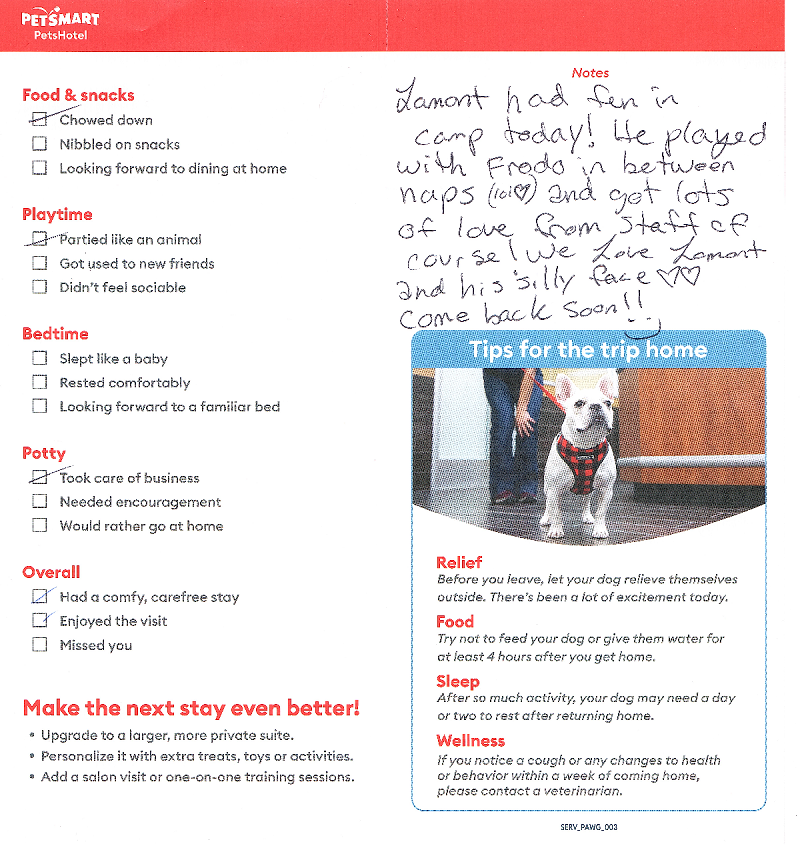 PETSMART
PetsHotel
Food & snacks
Chowed down
Nibbled on snacks
Looking forward to dining at home
Playtime
Partied like an animal
Got used to new friends
Didn't feel sociable
Bedtime
Slept like a baby
Rested comfortably
Looking forward to a familiar bed
Potty
Took care of business
Needed encouragement
Would rather go at home
Overall
Had a comfy, carefree stay
Enjoyed the visit
Missed you
Make the next stay even better!
• Upgrade to a larger, more private suite.
• Personalize it with extra treats, toys or activities.
• Add a salon visit or one-on-one training sessions.
Notes
Lamont had fun in
camp today! He played
with Frodo in between
naps (lol♡) and got lots
of love from staff of
course! We Love Lamont
and his silly face ♡♡
Come back soon!!
Tips for the trip home
Relief
Before you leave, let your dog relieve themselves
outside. There's been a lot of excitement today.
Food
Try not to feed your dog or give them water for
at least 4 hours after you get home.
Sleep
After so much activity, your dog may need a day
or two to rest after returning home.
Wellness
If you notice a cough or any changes to health
or behavior within a week of coming home,
please contact a veterinarian.
SERV_PAWG_003